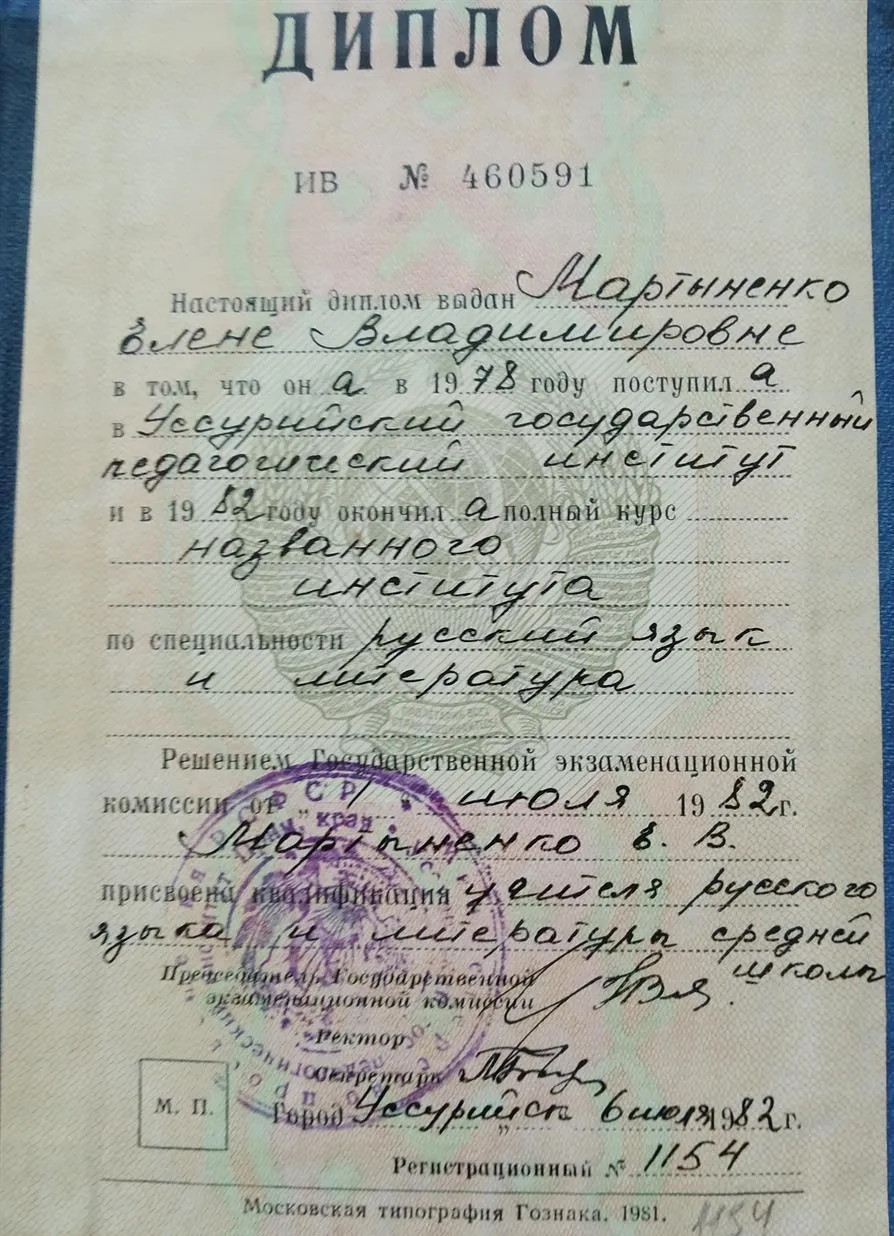 ДИПЛОМ
ИВ № 460591
Настоящий диплом выдан Мартыненко
Елене Владимировне
в том, что он а в 19 78 году поступил а
в Уссурийский государственный
педагогический институт
и в 19 82 году окончил а полный курс
названного
института
по специальности русский язык
и литература
Решением Государственной экзаменационной
комиссии от „ 1 " июля 19 82 г.
Мартыненко Е. В.
присвоена квалификация учителя русского
языка и литературы средней
школы
Председатель Государственной
экзаменационной комиссии
Ректор
Секретарь
М. П.
Город Уссурийск 6 июля 1982 г.
Регистрационный № 1154
Московская типография Гознака. 1981.
1154